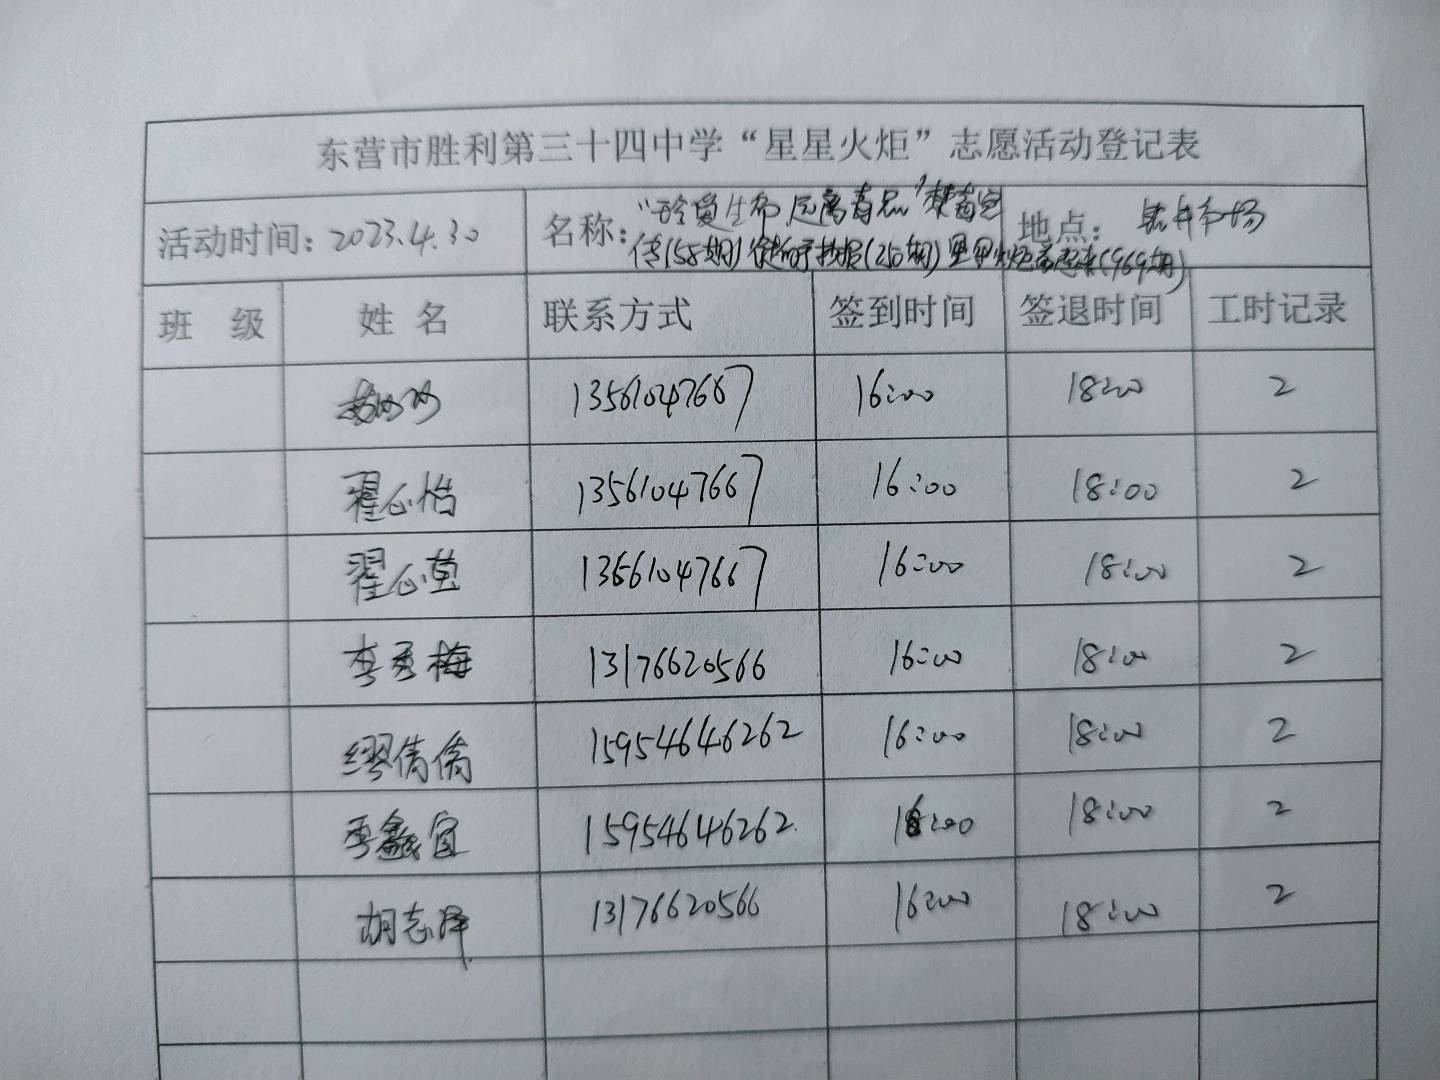 东营市胜利第三十四中学“星星火炬”志愿活动登记表
活动时间：2023.4.30 名称：“珍爱生命 远离毒品”禁毒宣 地点：
传(158期) (210期) 星星火炬 (969期)
班 级 姓 名 联系方式 签到时间 签退时间 工时记录
13561047667 16:00 18:00 2
翟心怡 13561047667 16:00 18:00 2
翟心 13561047667 16:00 18:00 2
李秀梅 13176620566 16:00 18:00 2
缪倩倩 15954646262 16:00 18:00 2
季鑫宜 15954646262 16:00 18:00 2
胡志泽 13176620566 16:00 18:00 2